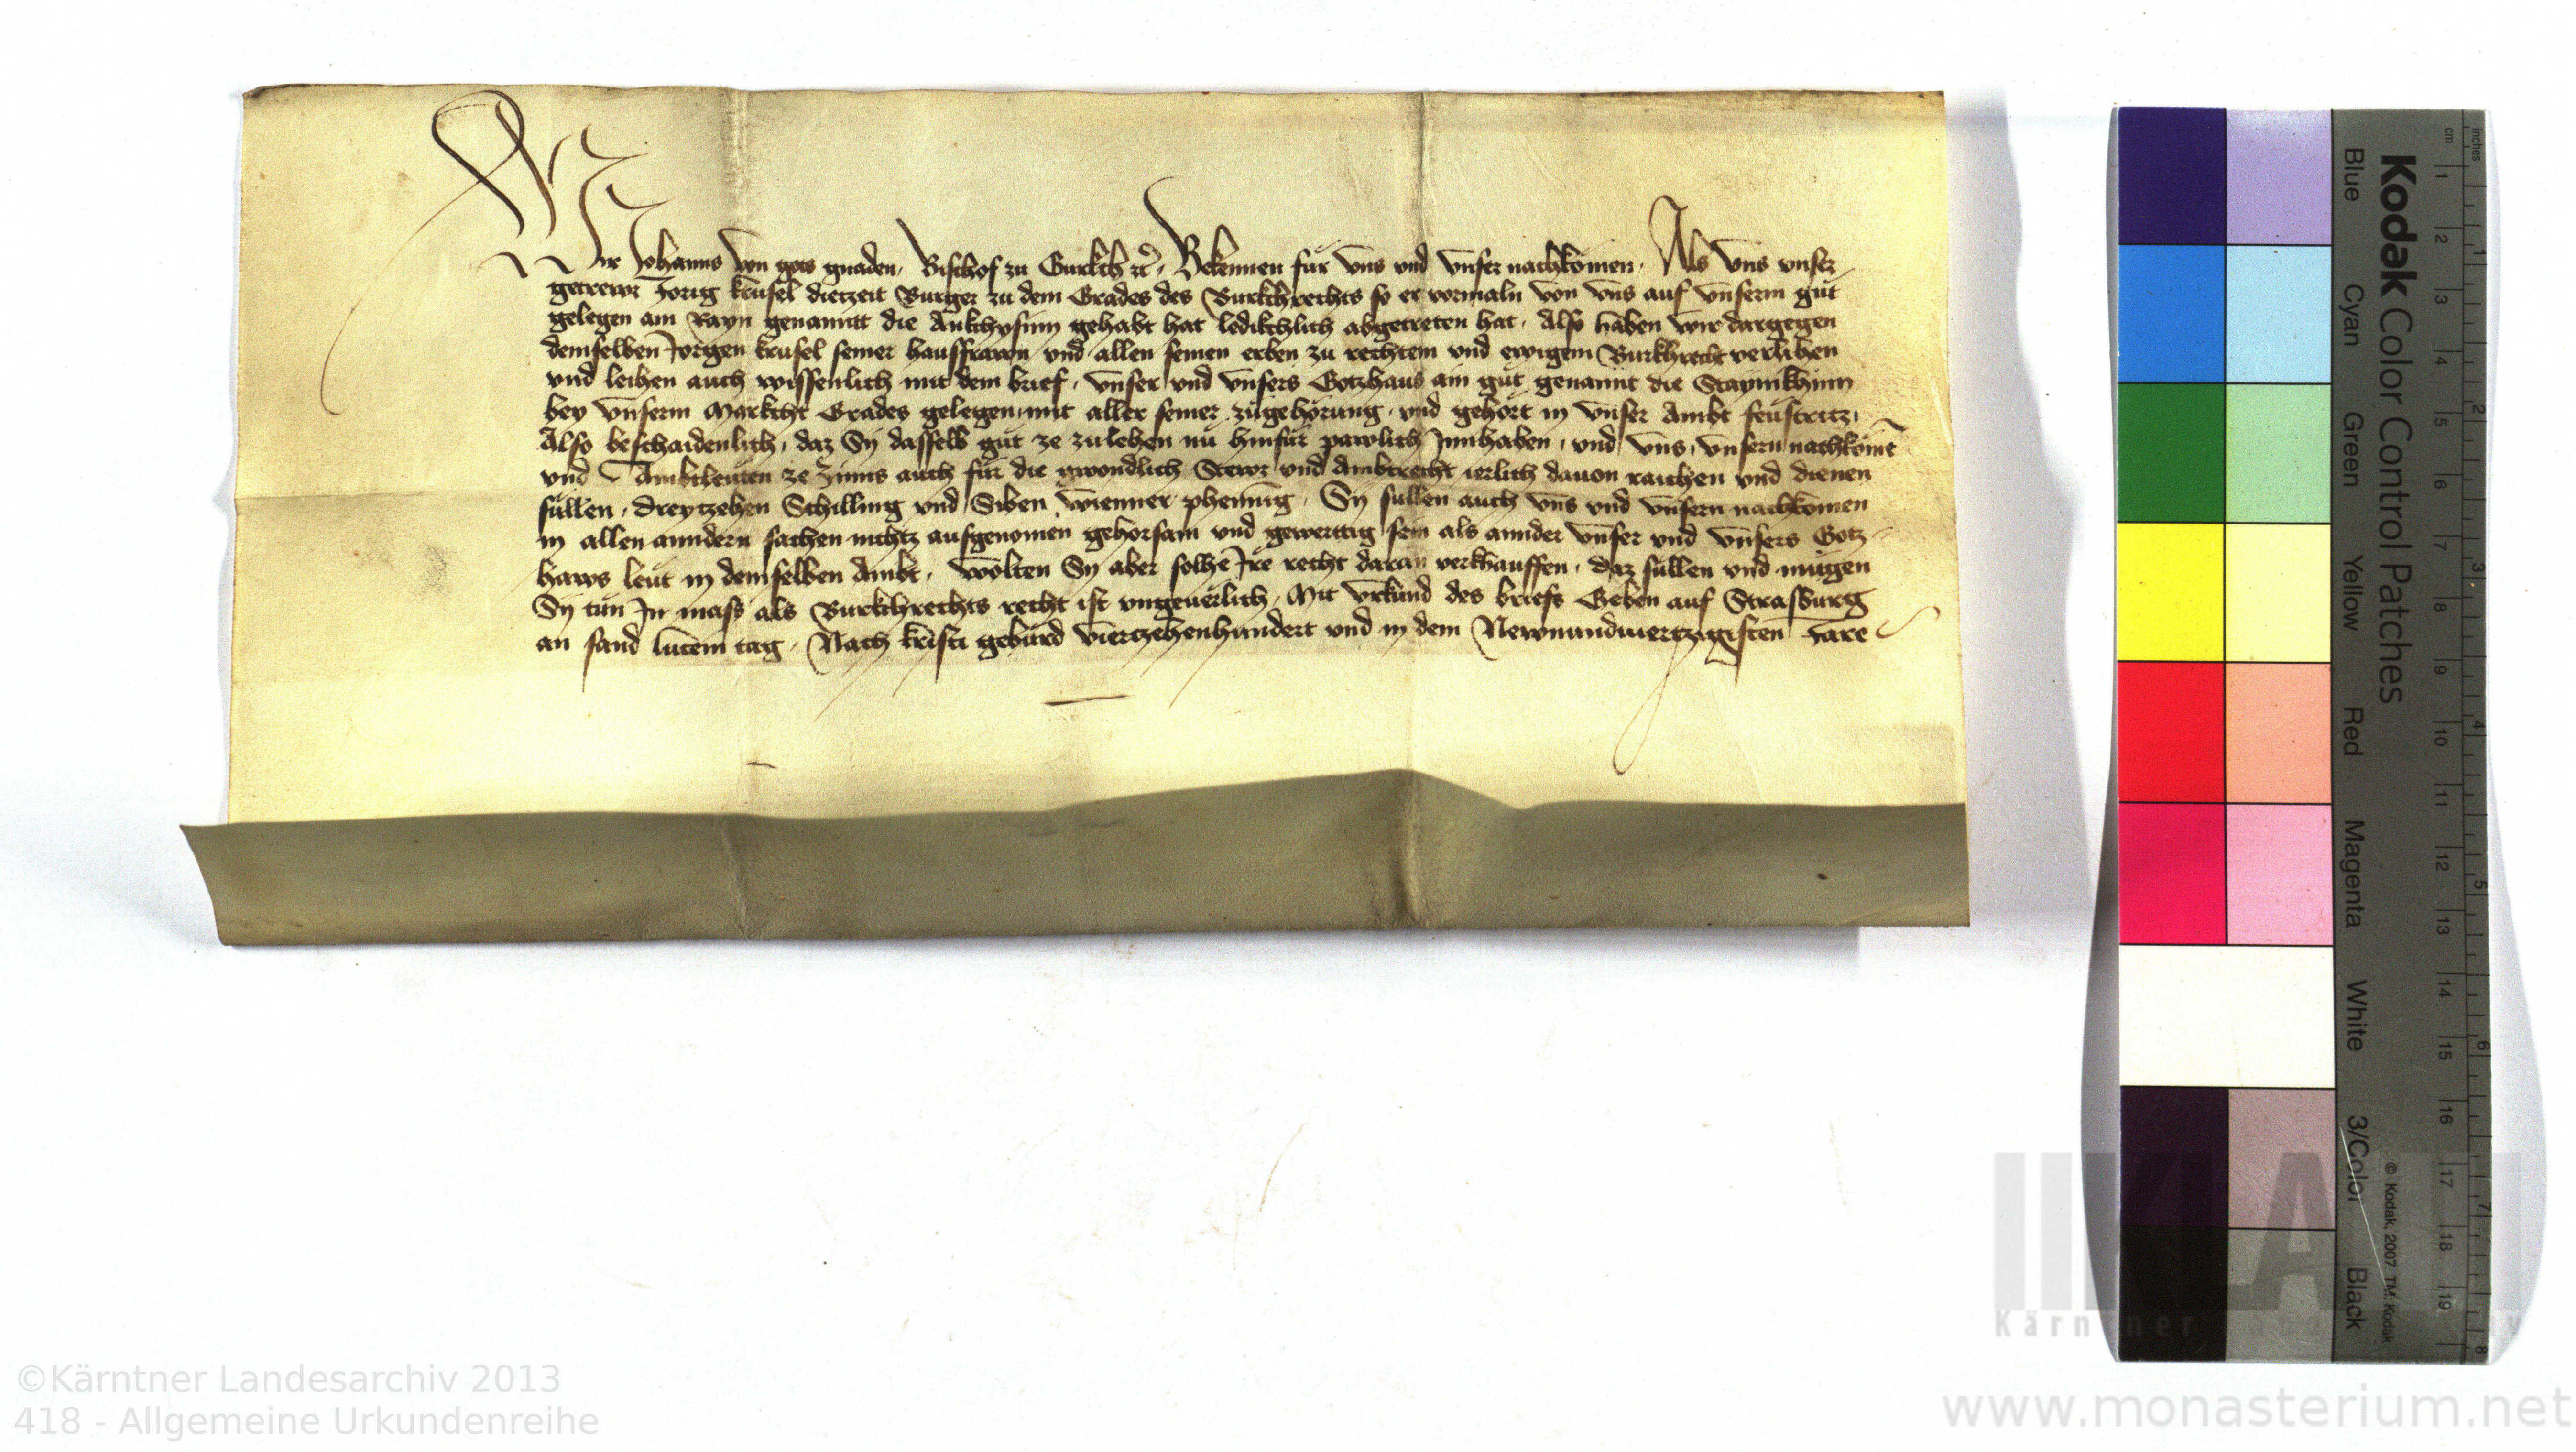 Wir Johanns von gots gnaden, Bischof zu Gurkch etc̃, Bekennen für vns vnd vnser nachkomen, Als vns vnser
getrewr Jorig krusel dietzeit Burger zu dem Grades des Burkchrechts so er vormaln von vns auf vnserm gut
gelegen am Rayn genannt die gehabt hat ledikchlich abgetreten hat. Also haben wir dargegen
demselben Jorgen krusel seiner hausfrawn vnd allen seinen erben zu rechtem vnd ewigem Burkhrecht verlihen
vnd leihen auch wissenlich mit dem brief, vnser vnd vnsers Gotzhaus ain gut genannt die
bey vnserm Markcht Grades gelegen, mit aller seiner zugehörung, vnd gehört in vnser Ambt feustritz,
Also beschaidenlich, daz Sy dasselb gut ze zulehen nu hinfür pawlich Innhaben, vnd vns, vnsern nachkomē
vnd Ambtleuten ze Zinns auch für die gwondlich Stewr vnd Ambtrecht ierlich dauon raichen vnd dienen
süllen, dreytzehen Schilling vnd Siben wienner phennig, Sy sullen auch vns vnd vnsern nachkomen
in allen anndern sachen nichtz ausgenomen gehorsam vnd gewerttig sein als annder vnser vnd vnsers Gotz-
haws leut in demselben Ambt, wolten Sy aber solhe Ire recht daran verkhauffen, daz süllen vnd mügen
Sy tun In mass als Burkchrechts recht ist vngeuerlich, Mit vrkund des briefs Geben auf Strasburg
an sand lucein tag, Nach kristi geburd viertzehenhundert vnd in dem Newnundviertzigisten Jare
Kodak Color Control Patches
Blue Cyan Green Yellow Red Magenta White 3/Color Black
© Kodak, 2007 TM: Kodak
cm 1 2 3 4 5 6 7 8 9 10 11 12 13 14 15 16 17 18 19
inches 1 2 3 4 5 6 7 8
Kärntner Landesarchiv
©Kärntner Landesarchiv 2013
418 - Allgemeine Urkundenreihe
www.monasterium.net